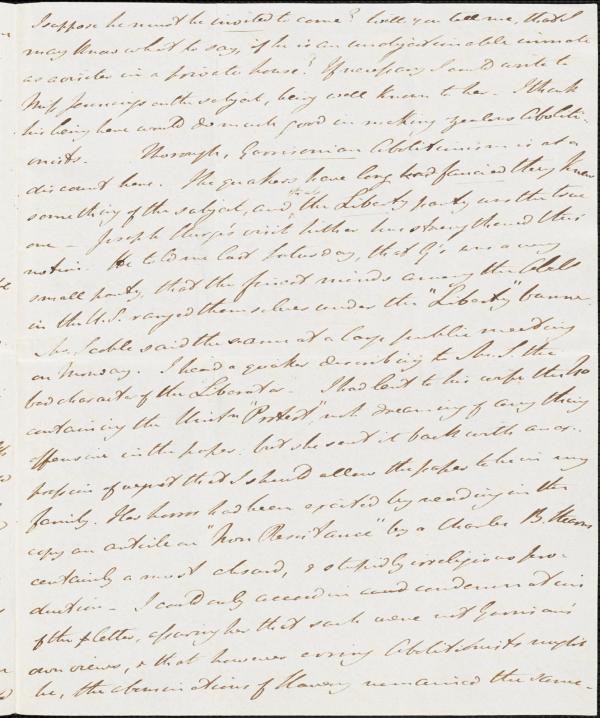 I suppose he must be invited to come? Will you tell me, that I
may know what to say, if he is an unobjectionable inmate
as a visitor in a private house? If necessary I could write to
Miss Jennings on the subject, being well known to her. I think
his being here would do much good in making zealous Aboliti-
onists. Thorough, Garrisonian Abolitionism is at a
discount here. The quakers have long had fancied they knew
something of the subject, and that the Liberty party was the true
one - Joseph Sturge's visit hither has strengthened this
notion. He told me last Saturday, that G's was a very
small party, that the finest minds among the Abols
in the U.S. ranged themselves under the "Liberty" banner.
Mr. Scoble said the same at a large public meeting
on Monday. I heard a quaker describing to Mr. S. the
bad character of the Liberator. I had lent to his wife the No
containing the Unitn "Protest", not dreaming of any thing
offensive in the paper, but she sent it back with an ex-
pression of regret that I should allow the paper to be in my
family. Her horror had been excited by reading in this
copy an article on "Non Resistance" by a Charles B. Stearns
certainly a most absurd, & stupidly irreligious pro-
duction - I could only accord in condemnation
of the letter, assuring her that such were not Garrison's
own views, & that however erring Abolitionists might
be, the abominations of Slavery remained the same.